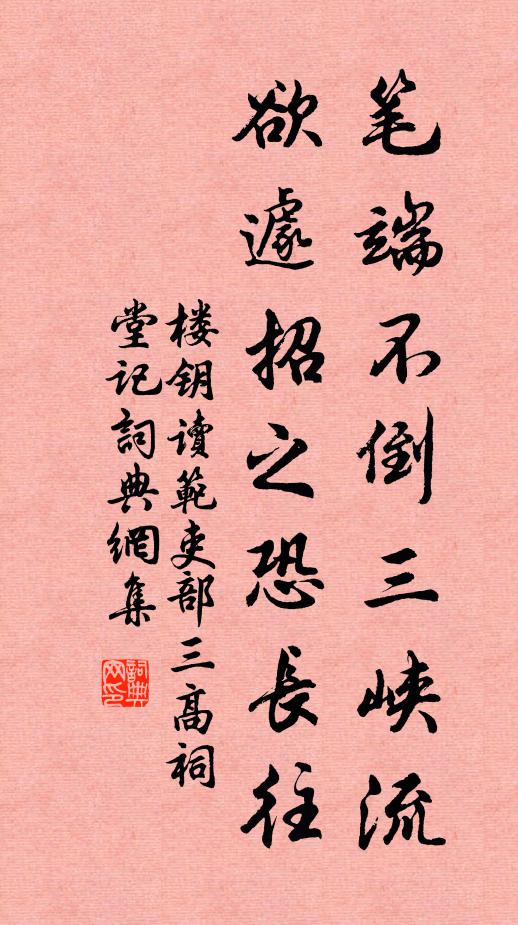 笔端不倒三峡流
欲遽招之恐長往
楼钥读範吏部三高祠
堂记詞典網集
詞典
网印